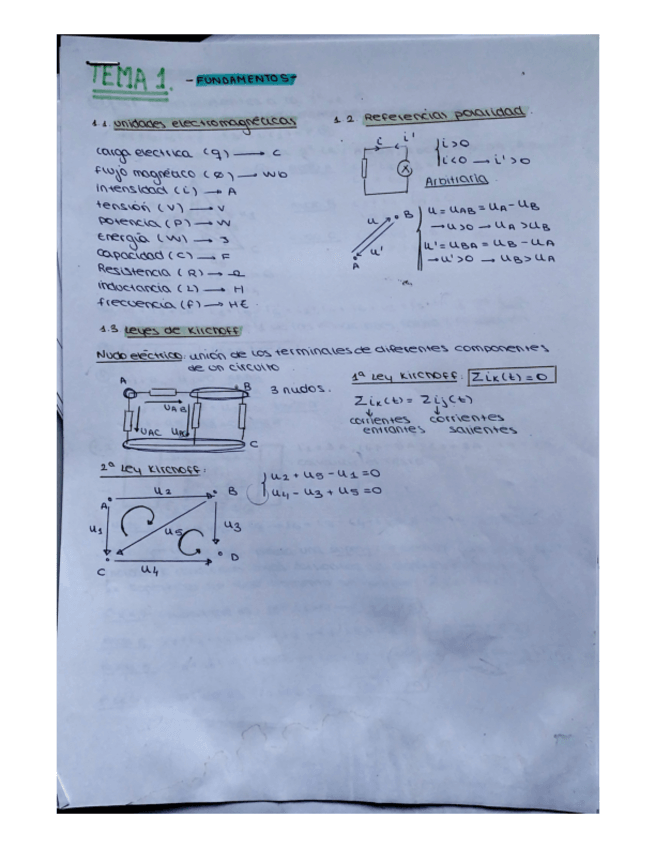 TEMA 1. - FUNDAMENTOS -
1.1. Unidades electromagnéticas
carga electrica (q) → C
Flujo magnético (Ø) → Wb
Intensidad (i) → A
tensión (V) → V
potencia (P) → W
Energía (W) → J
Capacidad (C) → F
Resistencia (R) → Ω
inductancia (L) → H
frecuencia (f) → HZ
1.2 Referencias polaridad.
i i'
i>0
i<0 → i'>0
Arbitraria.
u B
u'
A
u = uAB = uA - uB
→ u>0 → uA > uB
u' = uBA = uB - uA
→ u'>0 → uB > uA
1.3 Leyes de Kirchoff
Nudo eléctrico: unión de los terminales de diferentes componentes
de un circuito
A B 3 nudos.
UAB
UAC
C
1ª Ley Kirchoff: Σik(t) = 0
Σik(t) = Σij(t)
corrientes corrientes
entrantes salientes
2ª Ley Kirchoff:
u2 + u5 - u1 = 0
u4 - u3 + u5 = 0
A u2 B
u1 u5 u3
C u4 D